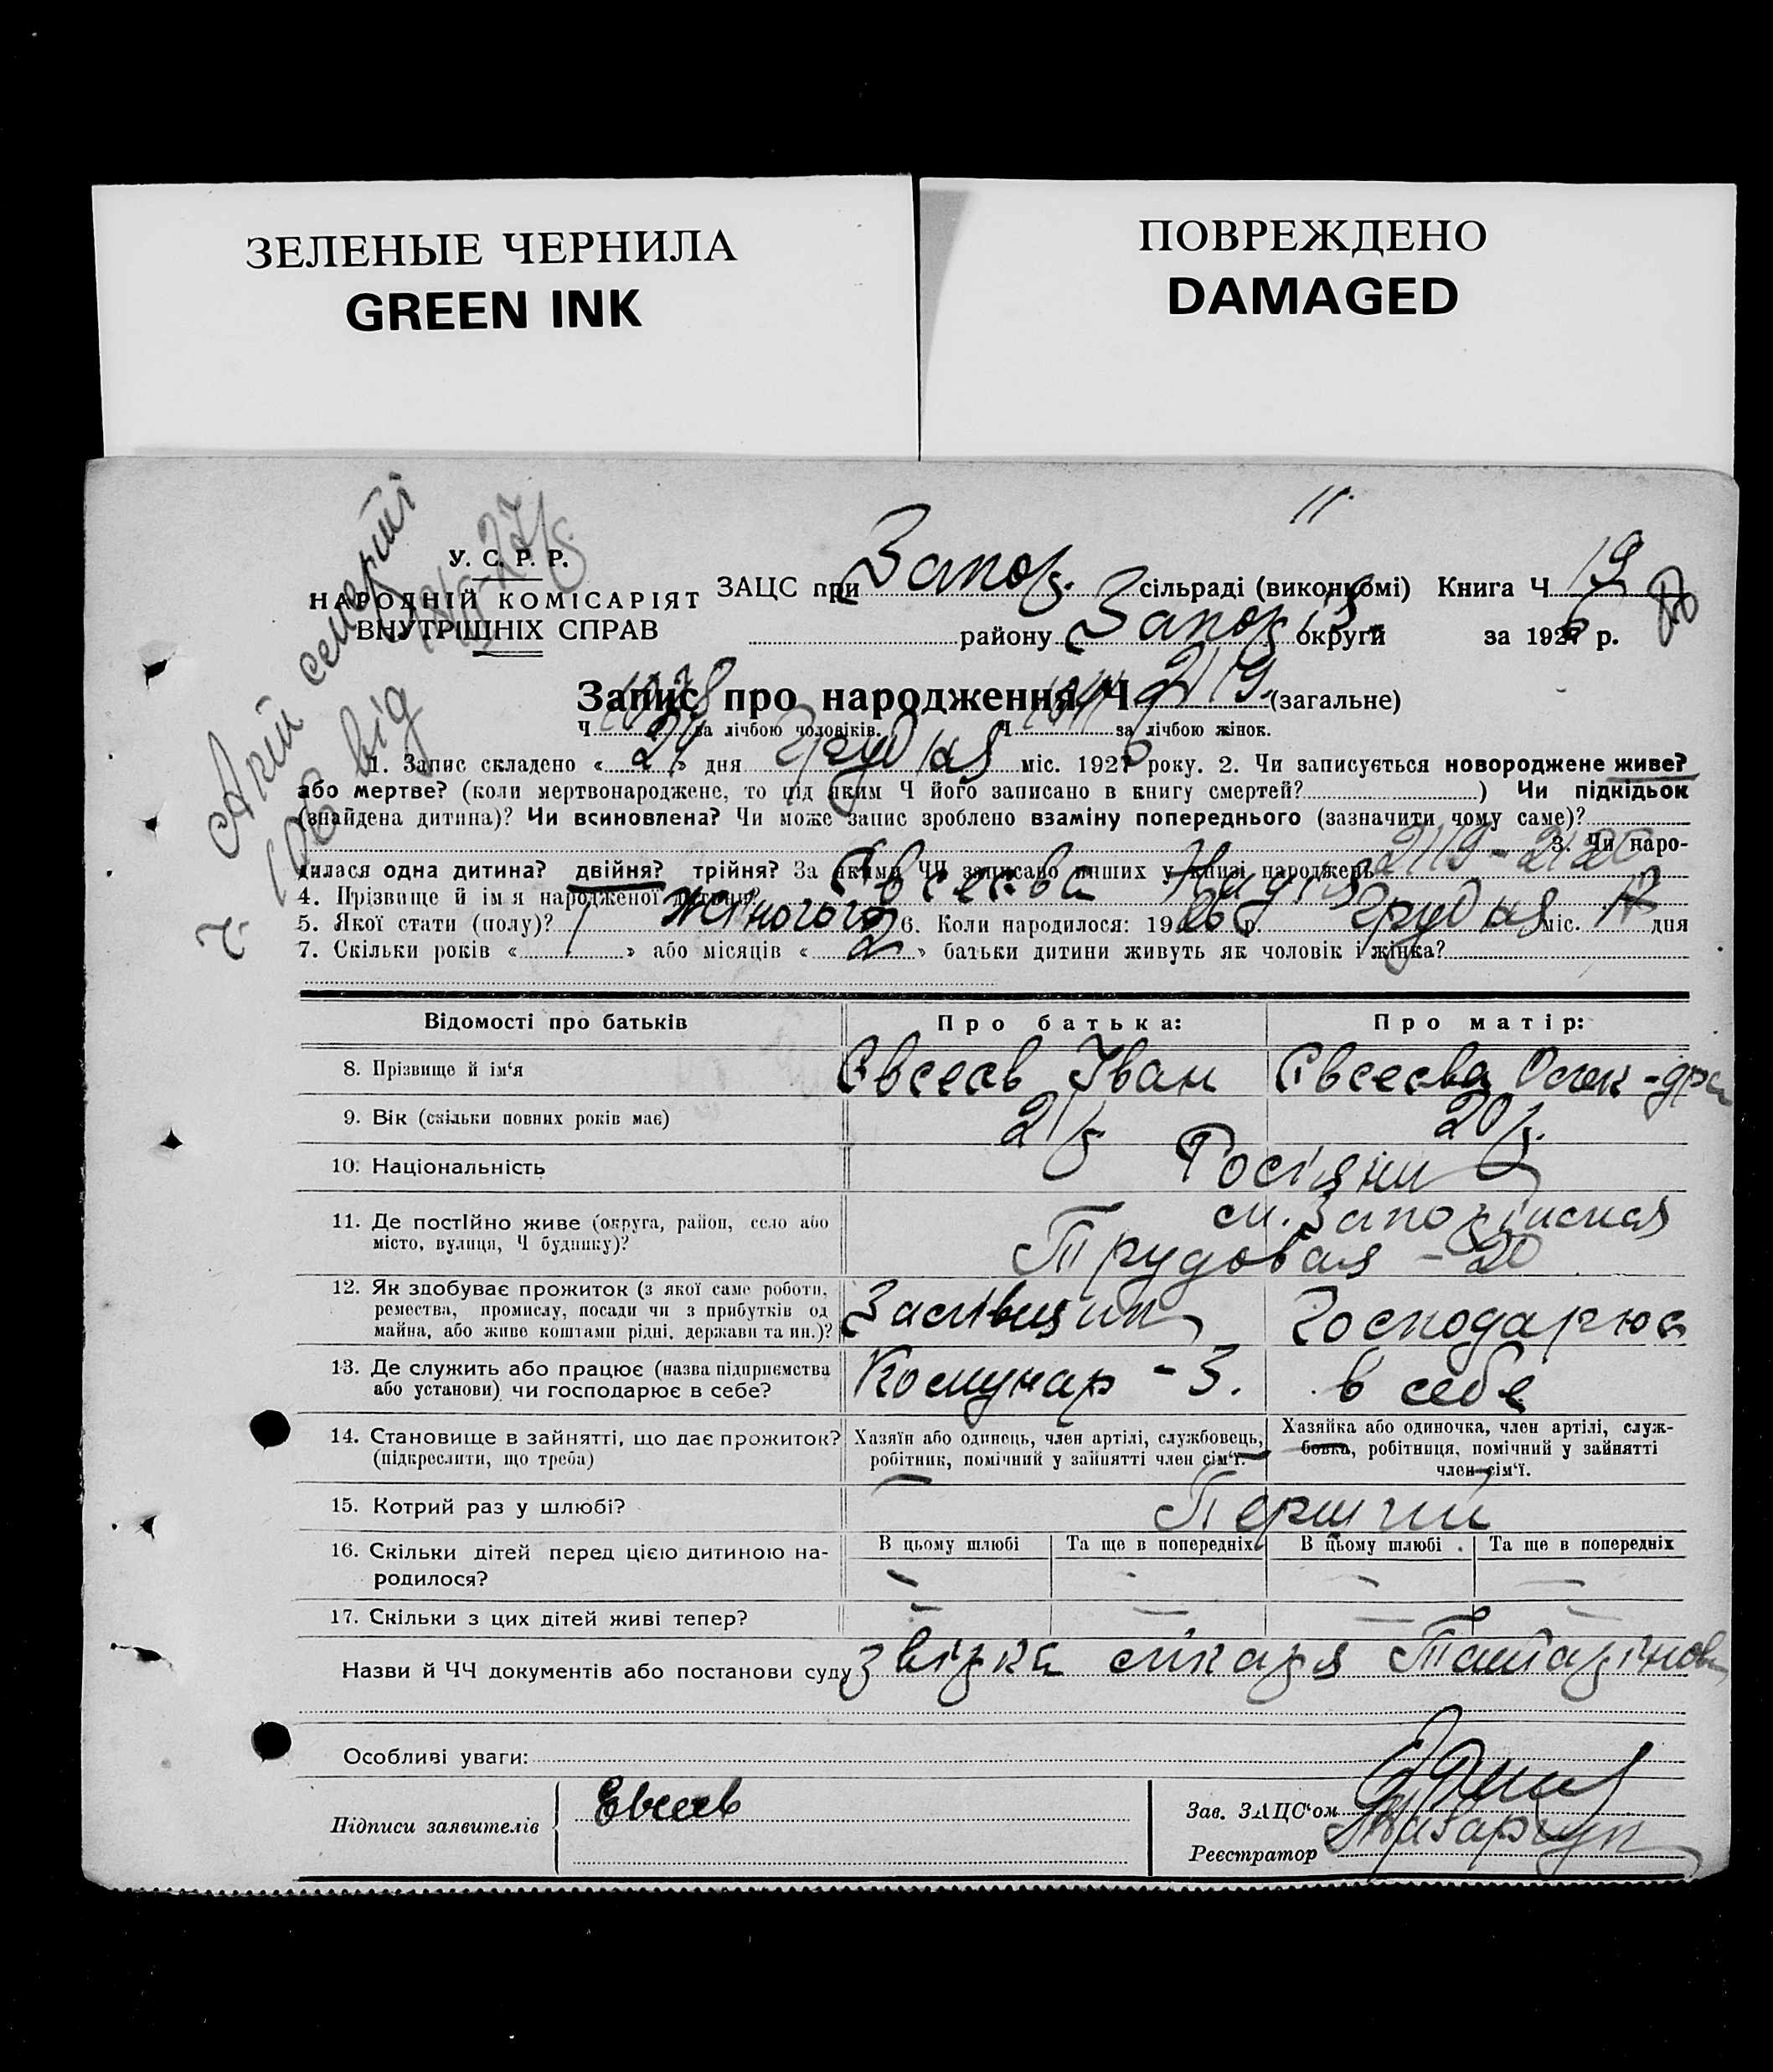 ЗЕЛЕНЫЕ ЧЕРНИЛА
GREEN INK
ПОВРЕЖДЕНО
DAMAGED
Акт смерті
від
У. С. Р. Р.
НАРОДНІЙ КОМІСАРІЯТ
ВНУТРІШНІХ СПРАВ
ЗАЦС при Запор. сільраді (виконкомі) Книга Ч 19
району Запоріз. округи за 1926 р.
Запис про народження Ч 2119 (загальне)
Ч 1078 за лічбою чоловіків. Ч 1041 за лічбою жінок.
1. Запис складено « 24 » дня Грудня міс. 1926 року. 2. Чи записується новороджене живе?
або мертве? (коли мертвонароджене, то під яким Ч його записано в книгу смертей? ) Чи підкідьок
(знайдена дитина)? Чи всиновлена? Чи може запис зроблено взаміну попереднього (зазначити чому саме)?
3. Чи наро-
дилася одна дитина? двійня? трійня? За якими ЧЧ записано инших у книзі народжень 2119-2120
4. Прізвище й ім'я народженої дитини? Євсеєва Надія
5. Якої стати (полу)? Жіночого 6. Коли народилося: 1926 р. Грудня міс. 17 дня
7. Скільки років « » або місяців « 2 » батьки дитини живуть як чоловік і жінка?
Відомості про батьків Про батька: Про матір:
8. Прізвище й ім'я Євсеєв Іван Євсеєва Олек-дра
9. Вік (скільки повних років має) 21 р 20 р.
10. Національність Росіяни
11. Де постійно живе (округа, район, село або
місто, вулиця, Ч будинку)?
Трудовая - 20
12. Як здобуває прожиток (з якої саме роботи,
ремества, промислу, посади чи з прибутків од
майна, або живе коштами рідні, держави та ин.)?
Господарює
13. Де служить або працює (назва підприємства
або установи) чи господарює в себе?
Комунар - З. в себе
14. Становище в зайнятті, що дає прожиток?
(підкреслити, що треба)
Хазяїн або одинець, член артілі, службовець,
робітник, помічний у зайнятті член сім'ї.
Хазяйка або одиночка, член артілі, служ-
бовка, робітниця, помічний у зайнятті
член сім'ї.
15. Котрий раз у шлюбі? Перший
16. Скільки дітей перед цією дитиною на-
родилося?
В цьому шлюбі Та ще в попередніх В цьому шлюбі Та ще в попередніх
17. Скільки з цих дітей живі тепер?
Назви й ЧЧ документів або постанови суду звізка лікаря
Особливі уваги:
Підписи заявителів Евсеев
Зав. ЗАЦС'ом
Реєстратор